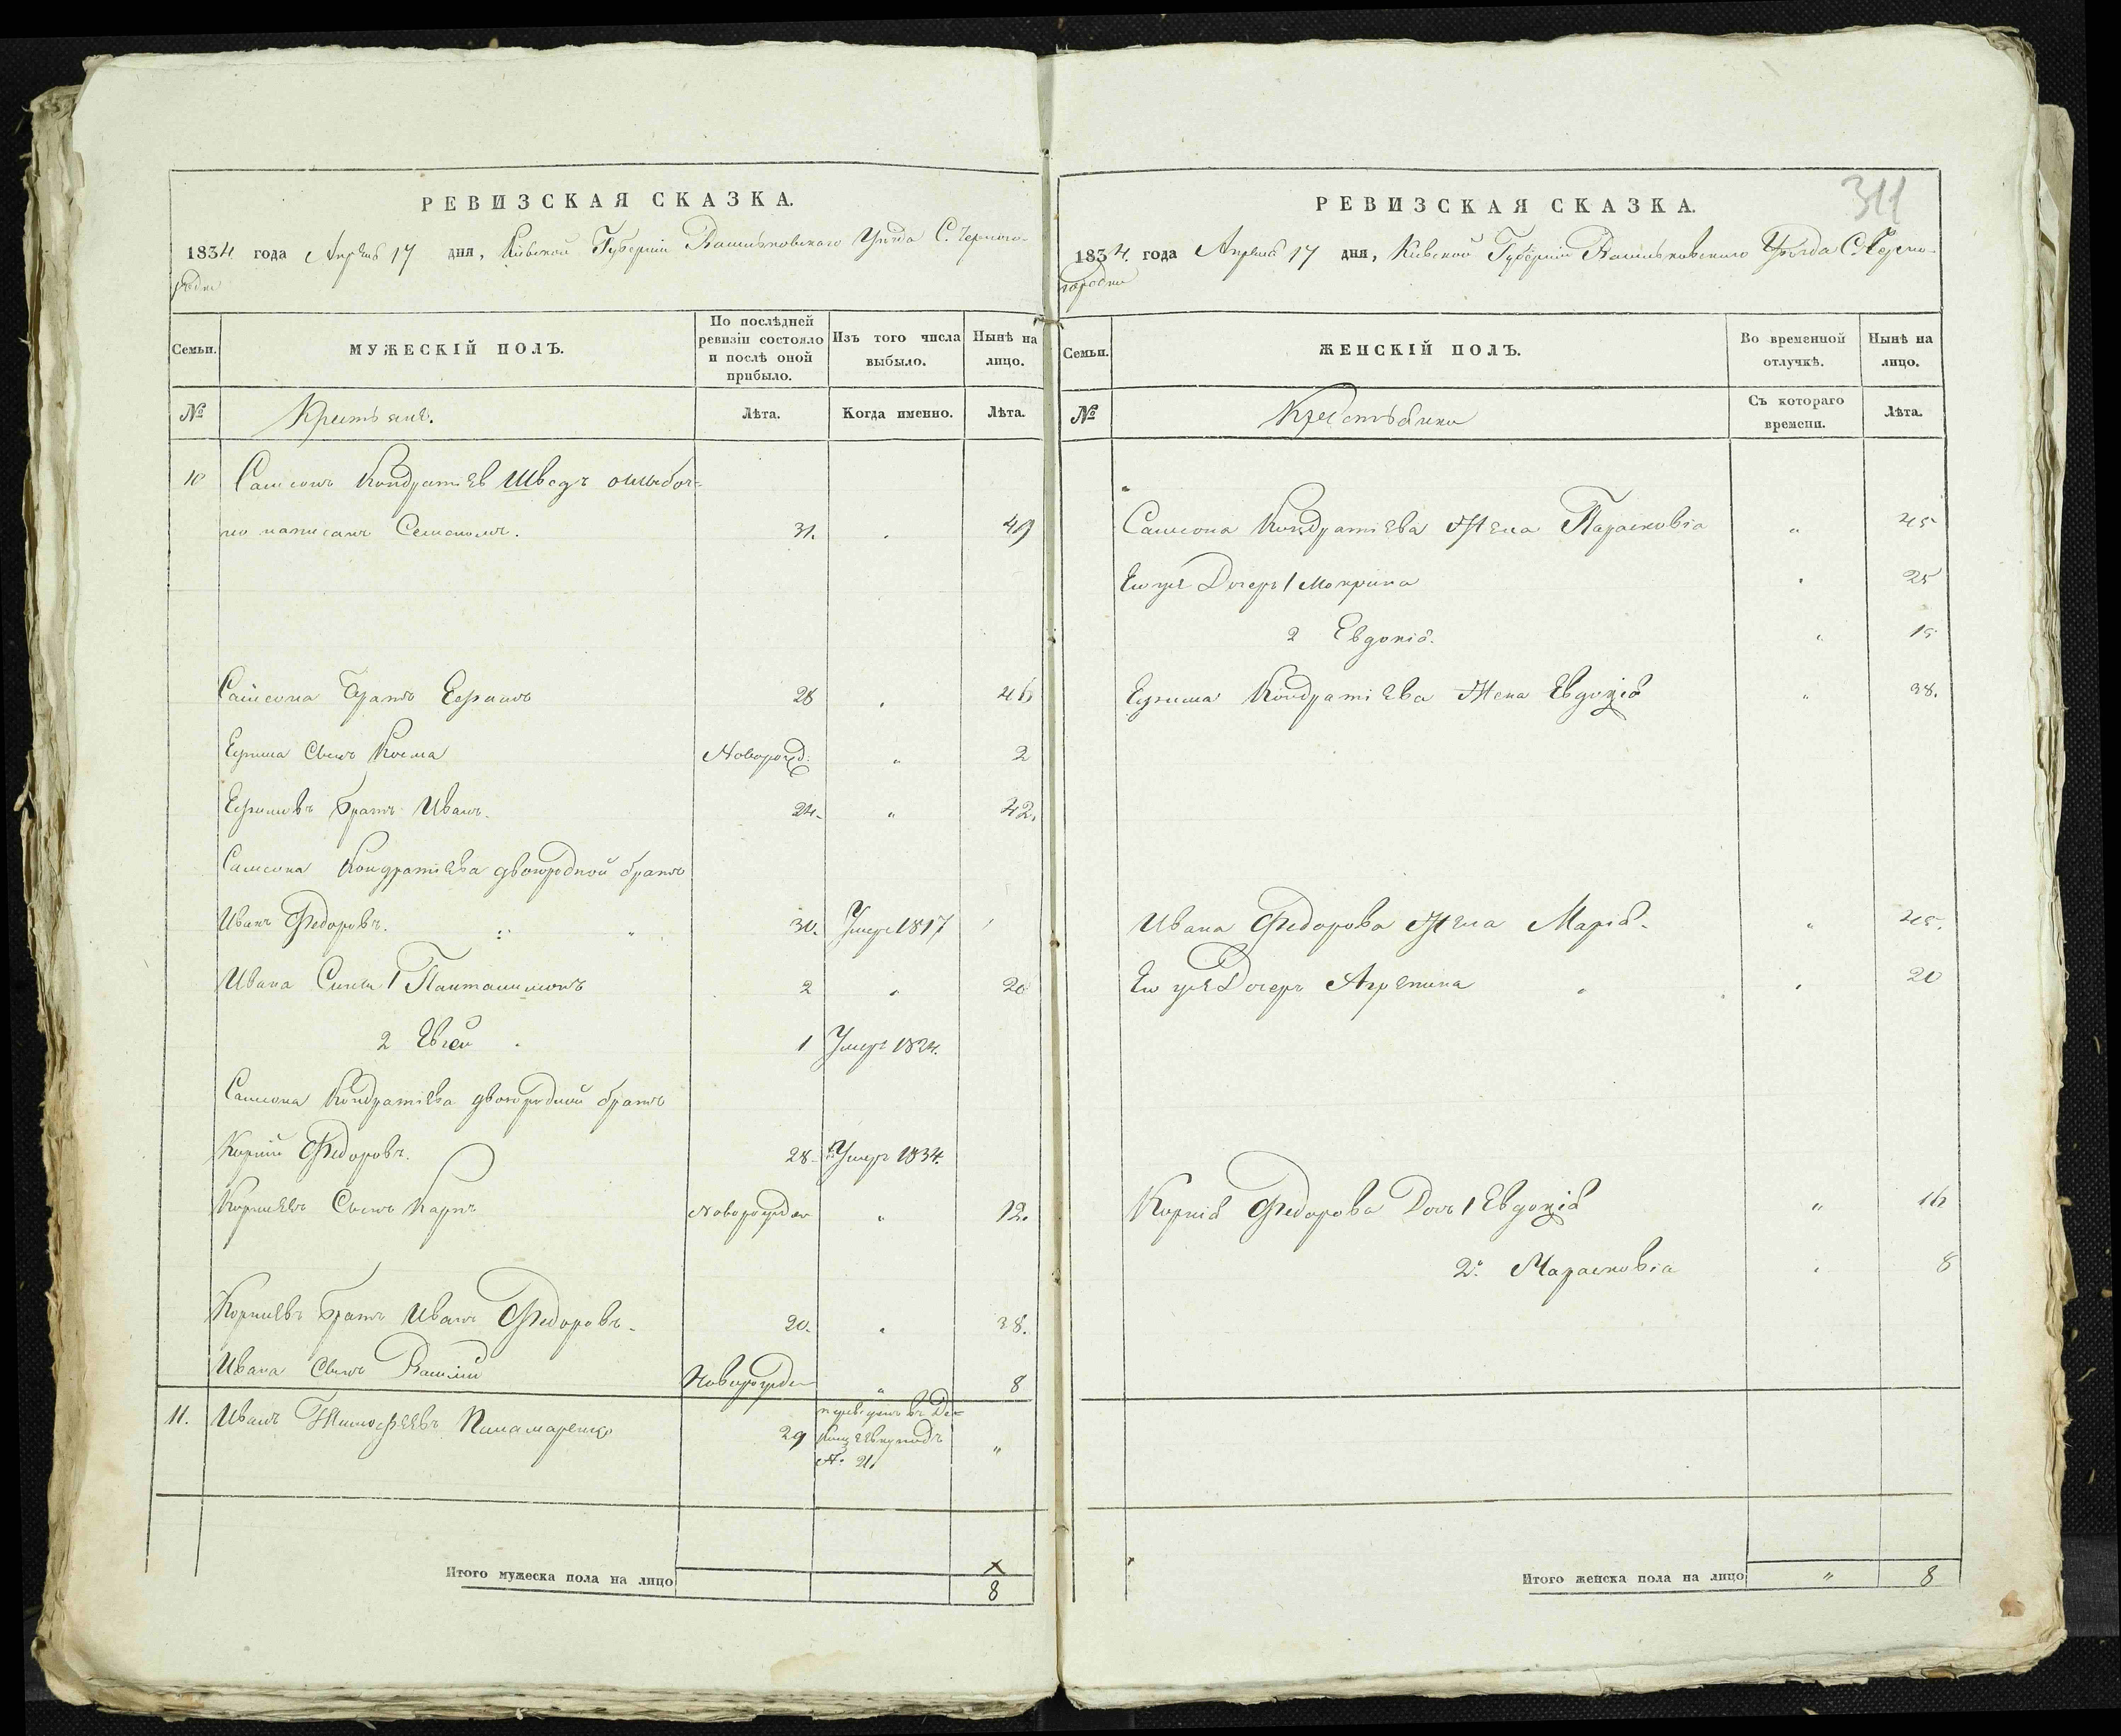 РЕВИЗСКАЯ СКАЗКА.
1834 года Апреля 17 дня, Кіевской Губерніи Васильковскаго Уѣзда С. Черного-
родки
Семьи.
МУЖЕСКІЙ ПОЛЪ.
По послѣдней ревизіи состояло и послѣ оной прибыло.
Изъ того числа выбыло.
Нынѣ на лицо.
№
Крестьяне.
Лѣта.
Когда именно.
Лѣта.
10 Самсонъ Кондратіев Швецъ ошибоч-
но написанъ Семеномъ. 31. 49
Самсона братъ Ефимъ 28 46
Ефима Сынъ Косма Новорожд: " 2
Ефимовъ братъ Иванъ. 24. " 42.
Самсона Кондратіева двоюродной братъ
Иванъ Федоровъ. 30. Умеръ 1817
Ивана Сыны 1 Пантелимонъ 2 " 20
2 Евсей 1 Умеръ 1824.
Самсона Кондратіева двоюродной братъ
Корній Федоровъ. 28. Умеръ 1834.
Корніевъ Сынъ Карпъ Новорожден " 12.
Корніевъ братъ Иванъ Федоровъ. 20. " 38.
Ивана Сынъ Василій Новорожден " 8
11. Иванъ Тимофеевъ Панамаренко 29 "
№ 21.
Итого мужеска пола на лицо
8
311
РЕВИЗСКАЯ СКАЗКА.
1834 года Апреля 17 дня, Кіевской Губерніи Васильковскаго Уѣзда С. Черно-
городки
Семьи.
ЖЕНСКІЙ ПОЛЪ.
Во временной отлучкѣ.
Нынѣ на лицо.
№
Крестьянки
Съ котораго времени.
Лѣта.
Самсона Кондратіева Жена Парасковіа " 45
Ею же Дочерь 1 Мокрина " 25
2 Евдокія. " 15
Ефима Кондратіева Жена Евдокія " 38.
Ивана Федорова Жена Марія. " 45.
Ею же Дочерь Агрепина " 20
Корнія Федорова Дочь 1 Евдокія " 16
2я Парасковіа " 8
Итого женска пола на лицо " 8